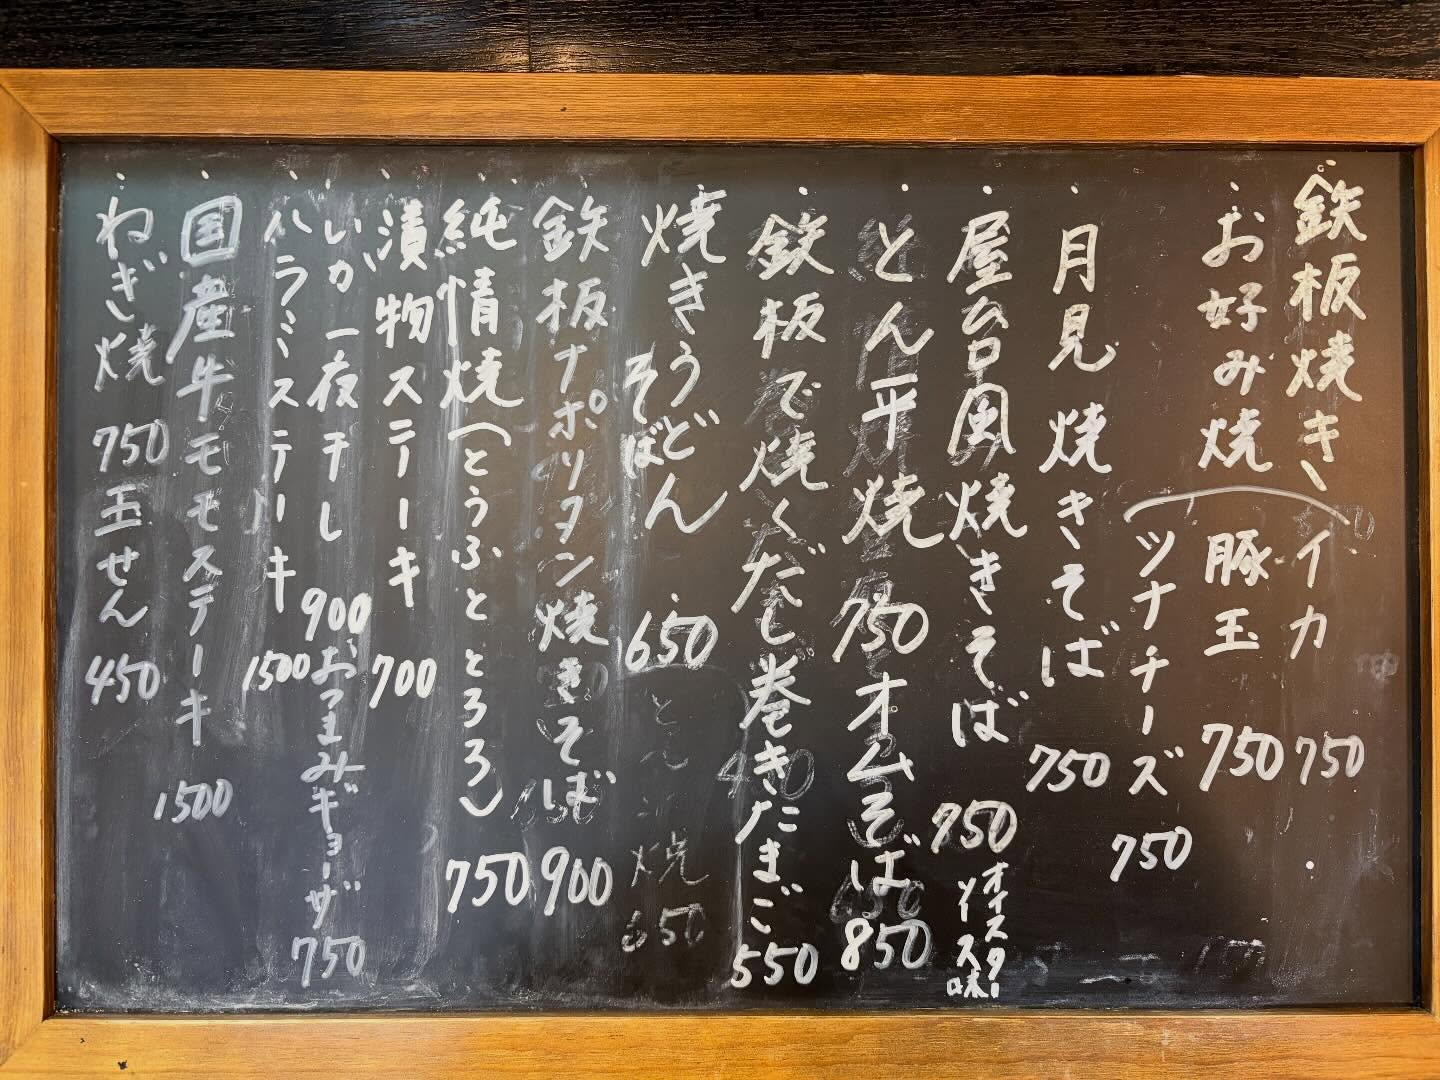 鉄板焼き
イカ 750
お好み焼
豚玉 750
ツナチーズ 750
月見焼きそば 750
屋台風焼きそば 750
オイスター
ソース味
とん平焼 750
オムそば 850
鉄板で焼くだし巻きたまご 550
焼きうどん
そばん
650
鉄板ナポリタン焼きそば 900
純情焼(とうふととろろ) 750
漬物ステーキ 700
いか一夜干し 900
おつまみギョーザ 750
ハラミステーキ 1500
国産牛モモステーキ 1500
ねぎ焼 750
玉せん 450